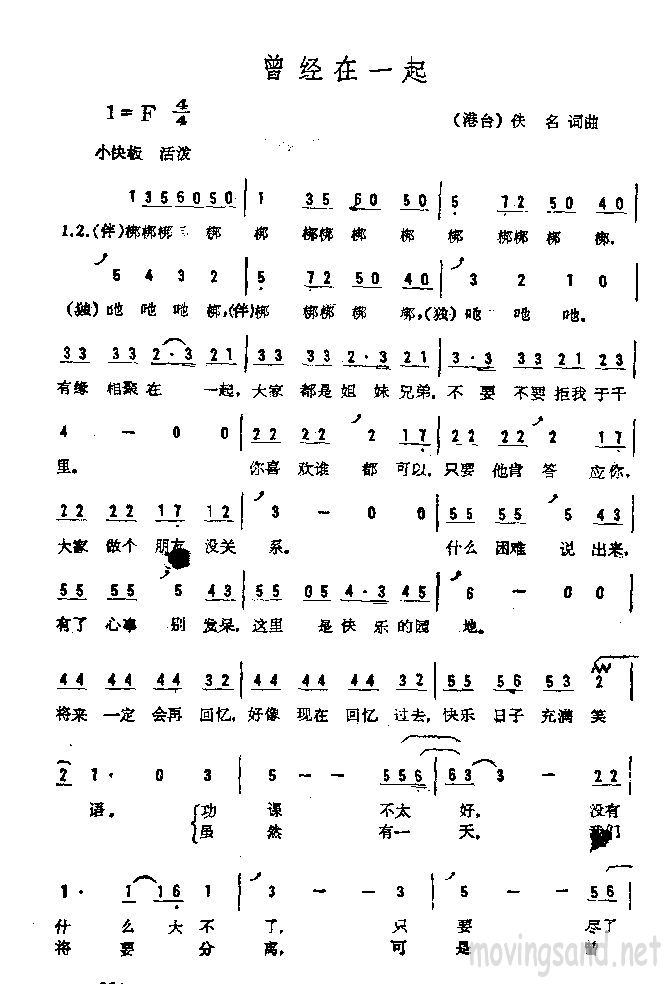 曾经在一起
1=F 4/4
（港台）佚 名 词曲
小快板 活泼
1 3 5 6 0 5 0 | 1 3 5 6 0 5 0 | 5 7 2 5 0 4 0 |
1.2.（伴）梆梆梆 梆 梆 梆梆 梆 梆 梆 梆梆 梆 梆.
5 4 3 2 | 5 7 2 5 0 4 0 | 3 2 1 0 |
（独）吔 吔 吔 梆,（伴）梆 梆梆 梆 梆,（独）吔 吔 吔.
3 3 3 3 2·3 2 1 | 3 3 3 3 2·3 2 1 | 3·3 3 3 2 2 1 2 |
有缘 相聚 在 一起, 大家 都是 姐 妹 兄弟. 不 要 不要 拒我 于千
4 — 0 0 | 2 2 2 2 2 1 7 | 2 2 2 2 2 1 7 |
里。 你喜 欢谁 都 可以, 只要 他肯 答 应你,
2 2 2 2 1 7 1 2 | 3 — 0 0 | 5 5 5 5 5 4 3 |
大家 做个 朋友 没关 系。 什么 困难 说 出来,
5 5 5 5 5 4 3 | 5 5 0 5 4·3 4 5 | 6 — 0 0 |
有了 心事 别 发呆, 这里 是 快 乐 的园 地。
4 4 4 4 4 4 3 2 | 4 4 4 4 4 4 3 2 | 5 5 5 6 5 5 2 |
将来 一定 会再 回忆, 好像 现在 回忆 过去, 快乐 日子 充满 笑
2 1· 0 3 | 5 — — 5 5 6 | 6 3 3 — 2 2 |
语。 功 课 不太 好, 没有
虽 然 有一 天, 我们
1· 1 1 6 1 | 3 — — 3 | 5 — — 5 6 |
什 么 大 不 了, 只 要 尽了
将 要 分 离, 可 是 曾
movingsand.net